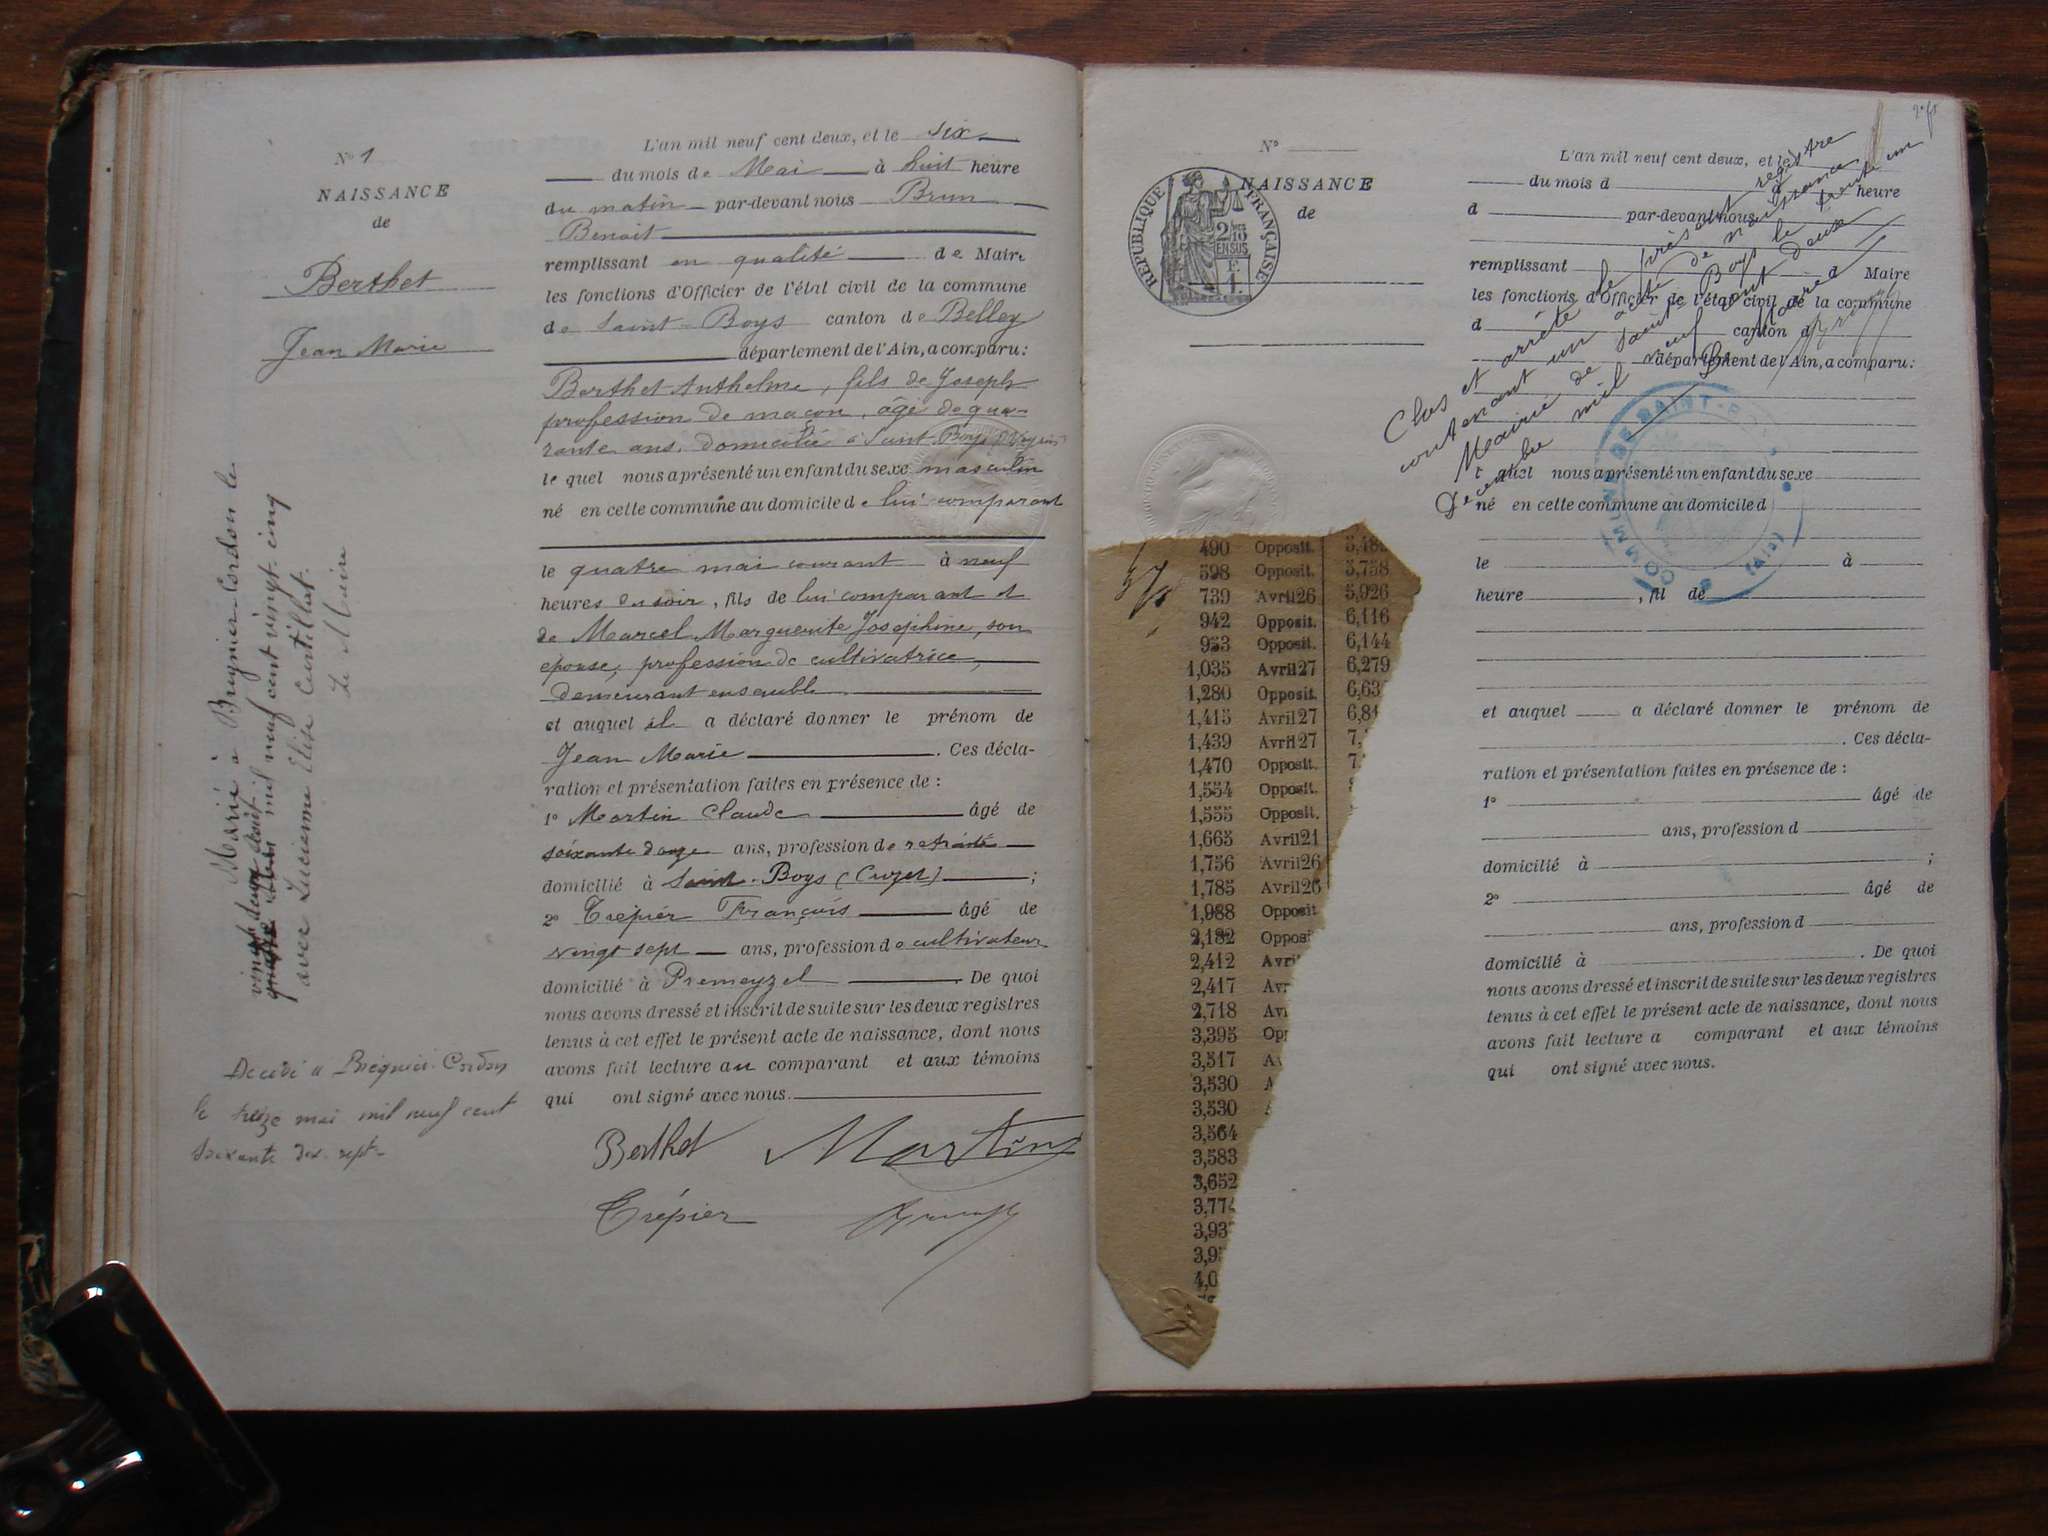 Nº 1
NAISSANCE
de
Berthet
Jean Marie
L'an mil neuf cent deux, et le six
du mois de Mai à huit heure
du matin par-devant nous Brun
Benoit
remplissant en qualité de Maire
les fonctions d'Officier de l'état civil de la commune
de Saint-Boys canton de Belley
département de l'Ain, a comparu :
Berthet Anthelme, fils de Joseph
profession de maçon, âgé de qua-
rante ans, domicilié à Saint-Boys
le quel nous a présenté un enfant du sexe masculin
né en cette commune au domicile de lui comparant
le quatre mai courant à neuf
heures du soir, fils de lui comparant et
de Marcel Marguerite Joséphine, son
épouse, profession de cultivatrice,
demeurant ensemble
et auquel il a déclaré donner le prénom de
Jean Marie . Ces décla-
ration et présentation faites en présence de :
1º Martin Claude âgé de
soixante douze ans, profession de retraité
domicilié à Saint-Boys (Cuzet) ;
2º Trépier François âgé de
vingt sept ans, profession de cultivateur
domicilié à Premeyzel . De quoi
nous avons dressé et inscrit de suite sur les deux registres
tenus à cet effet le présent acte de naissance, dont nous
avons fait lecture au comparant et aux témoins
qui ont signé avec nous.
Berthet Martin
Trépier
Marié à Brégnier-Cordon le
vingt deux août mil neuf cent vingt-cinq
avec Lucienne Elise Curtillat.
Le Maire
Décédé à Brégnier-Cordon
le treize mai mil neuf cent
soixante dix-sept
Nº
NAISSANCE
de
RÉPUBLIQUE FRANÇAISE
2/10
EN SUS
F.
1.
L'an mil neuf cent deux, et le
du mois d à heure
d par-devant nous
remplissant d Maire
les fonctions d'Officier de l'état civil de la commune
d canton d
département de l'Ain, a comparu :
Clos et arrêté le présent registre
contenant un acte de naissance
Mairie de Saint Boys le trente un
Décembre mil neuf cent deux
Le Maire
COMMUNE DE SAINT-BOYS (AIN)
l quel nous a présenté un enfant du sexe
né en cette commune au domicile d
le à
heure , fil de
et auquel a déclaré donner le prénom de
. Ces décla-
ration et présentation faites en présence de :
1º âgé de
ans, profession d
domicilié à ;
2º âgé de
ans, profession d
domicilié à . De quoi
nous avons dressé et inscrit de suite sur les deux registres
tenus à cet effet le présent acte de naissance, dont nous
avons fait lecture a comparant et aux témoins
qui ont signé avec nous.
490 Opposit.
598 Opposit. 5,758
739 Avril 26 5,926
942 Opposit. 6,116
953 Opposit. 6,144
1,035 Avril 27 6,279
1,280 Opposit. 6,63
1,415 Avril 27 6,8
1,439 Avril 27 7,
1,470 Opposit. 7
1,554 Opposit.
1,555 Opposit.
1,665 Avril 21
1,756 Avril 26
1,785 Avril 26
1,988 Opposit
2,182 Opposi
2,412 Avri
2,417 Avr
2,718 Av
3,395 Op
3,517 A
3,530
3,530
3,564
3,583
3,652
3,77
3,93
3,9
4,0